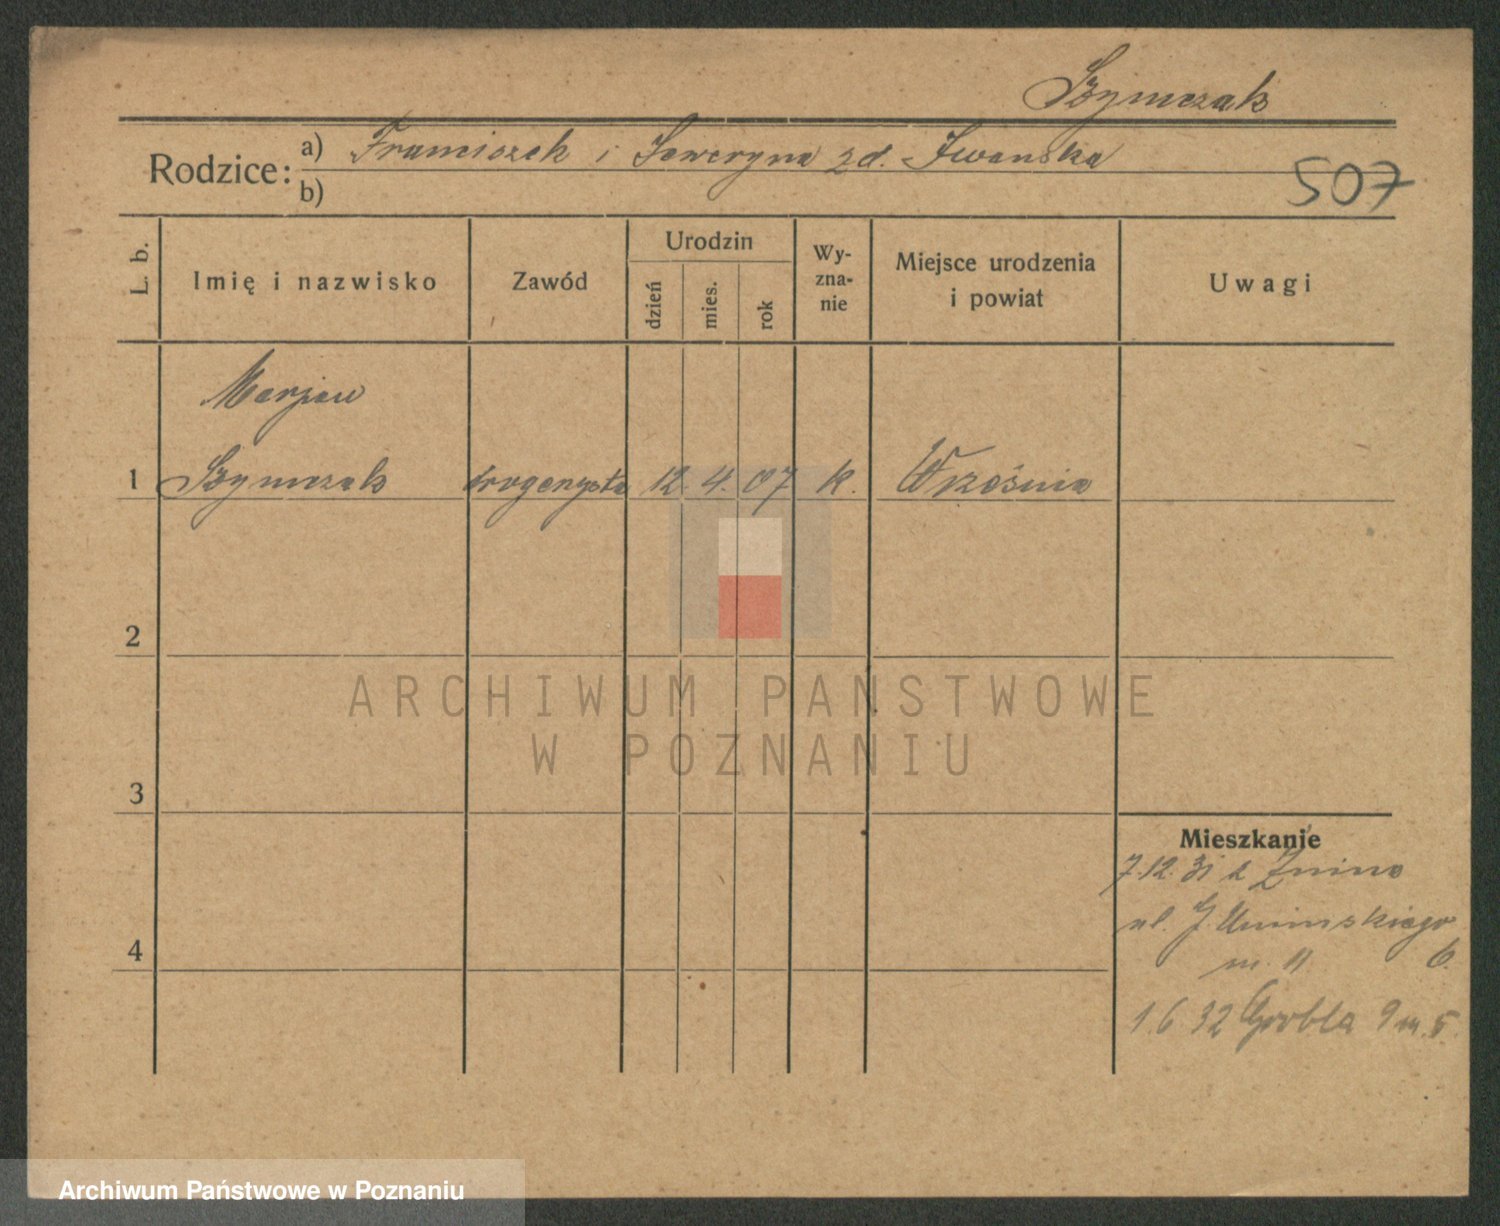 Szymczak
Rodzice: a) Franciszek i Seweryna zd. Iwańska
b)
507
L. b.
Imię i nazwisko
Zawód
Urodzin
dzień
mies.
rok
Wy-
zna-
nie
Miejsce urodzenia
i powiat
Uwagi
Marjan
1 Szymczak drogerzysta 12. 4. 07 k. Września
2
3
4
Mieszkanie
7.12.31 z Żnina
ul. J. Umińskiego 6.
m. 11
1.6 32 Grobla 9 m. 5.
ARCHIWUM PAŃSTWOWE
W POZNANIU
Archiwum Państwowe w Poznaniu